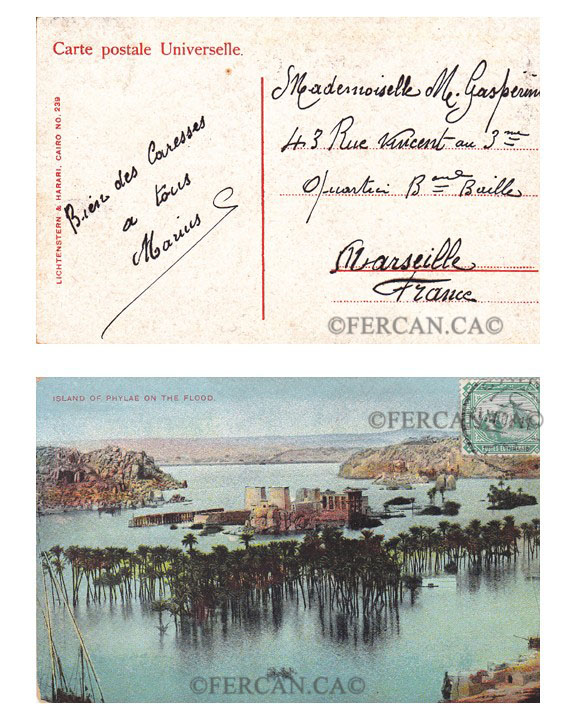 Carte postale Universelle.
LICHTENSTERN & HARARI, CAIRO NO. 239
Bien des Caresses
a tous
Marius
Mademoiselle M. Gasperin
43 Rue Vincent au 3me
Quartier Bne Baille
Marseille
France
©FERCAN.CA©
ISLAND OF PHYLAE ON THE FLOOD.
©FERCAN.CA©
©FERCAN.CA©